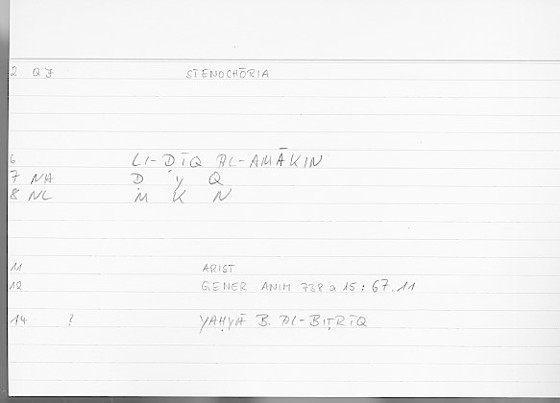 2 QJ STENOCHŌRIA
6 LI-ḌĪQ AL-AMĀKIN
7 NA Ḍ Y Q
8 NL M K N
11 ARIST
12 GENER ANIM 738 a 15 : 67.11
14 ? YAḤYĀ B. AL-BIṬRĪQ